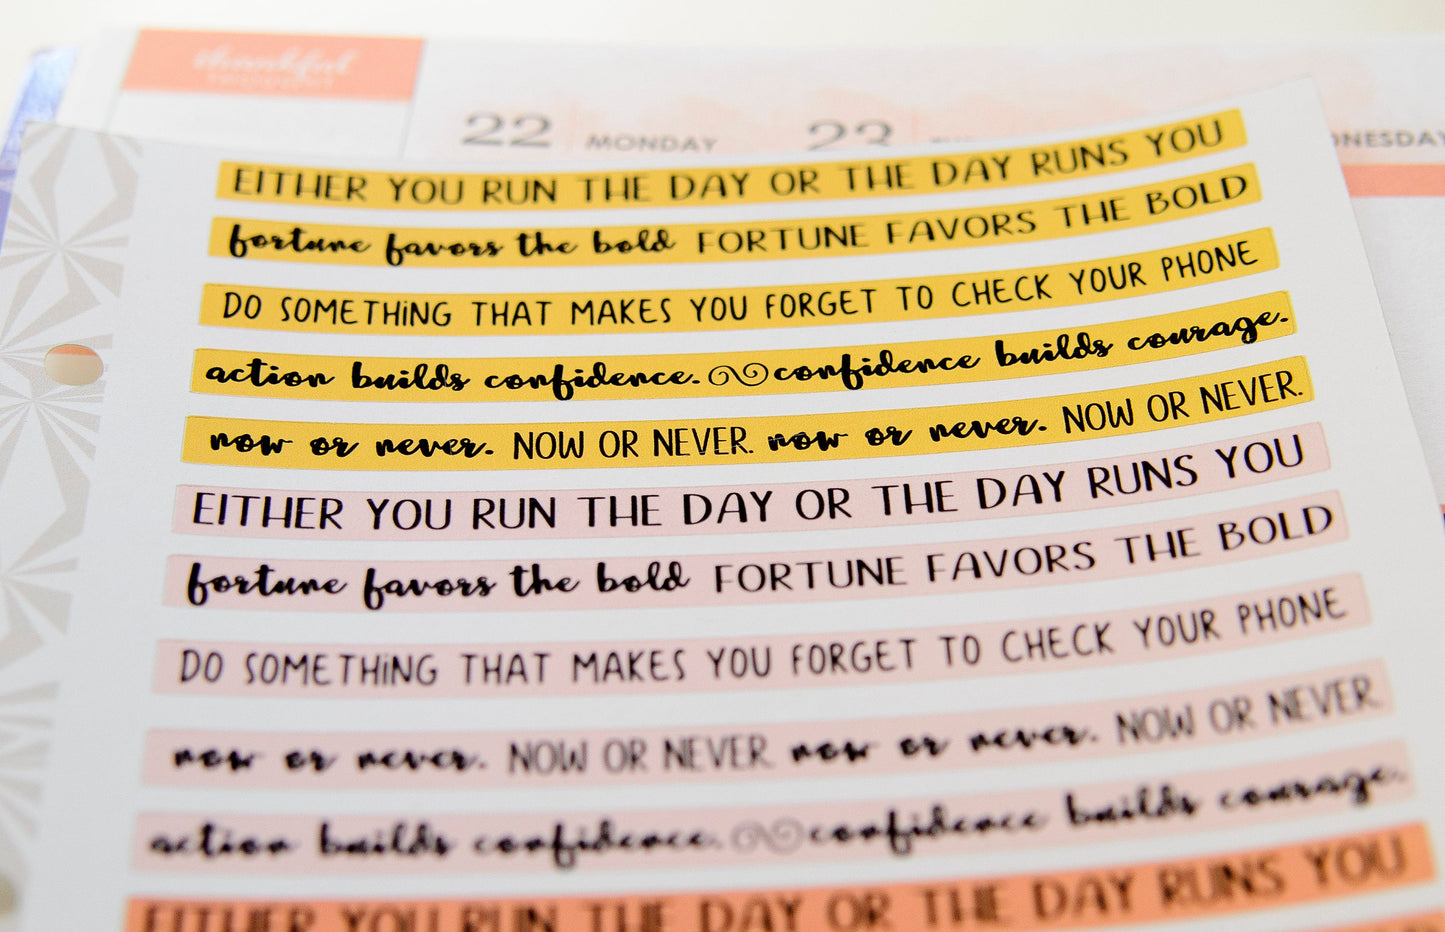 thankful
22 MONDAY 23
EITHER YOU RUN THE DAY OR THE DAY RUNS YOU
fortune favors the bold FORTUNE FAVORS THE BOLD
DO SOMETHING THAT MAKES YOU FORGET TO CHECK YOUR PHONE
action builds confidence. confidence builds courage.
now or never. NOW OR NEVER. now or never. NOW OR NEVER.
EITHER YOU RUN THE DAY OR THE DAY RUNS YOU
fortune favors the bold FORTUNE FAVORS THE BOLD
DO SOMETHING THAT MAKES YOU FORGET TO CHECK YOUR PHONE
now or never. NOW OR NEVER. now or never. NOW OR NEVER.
action builds confidence. confidence builds courage.
EITHER YOU RUN THE DAY OR THE DAY RUNS YOU